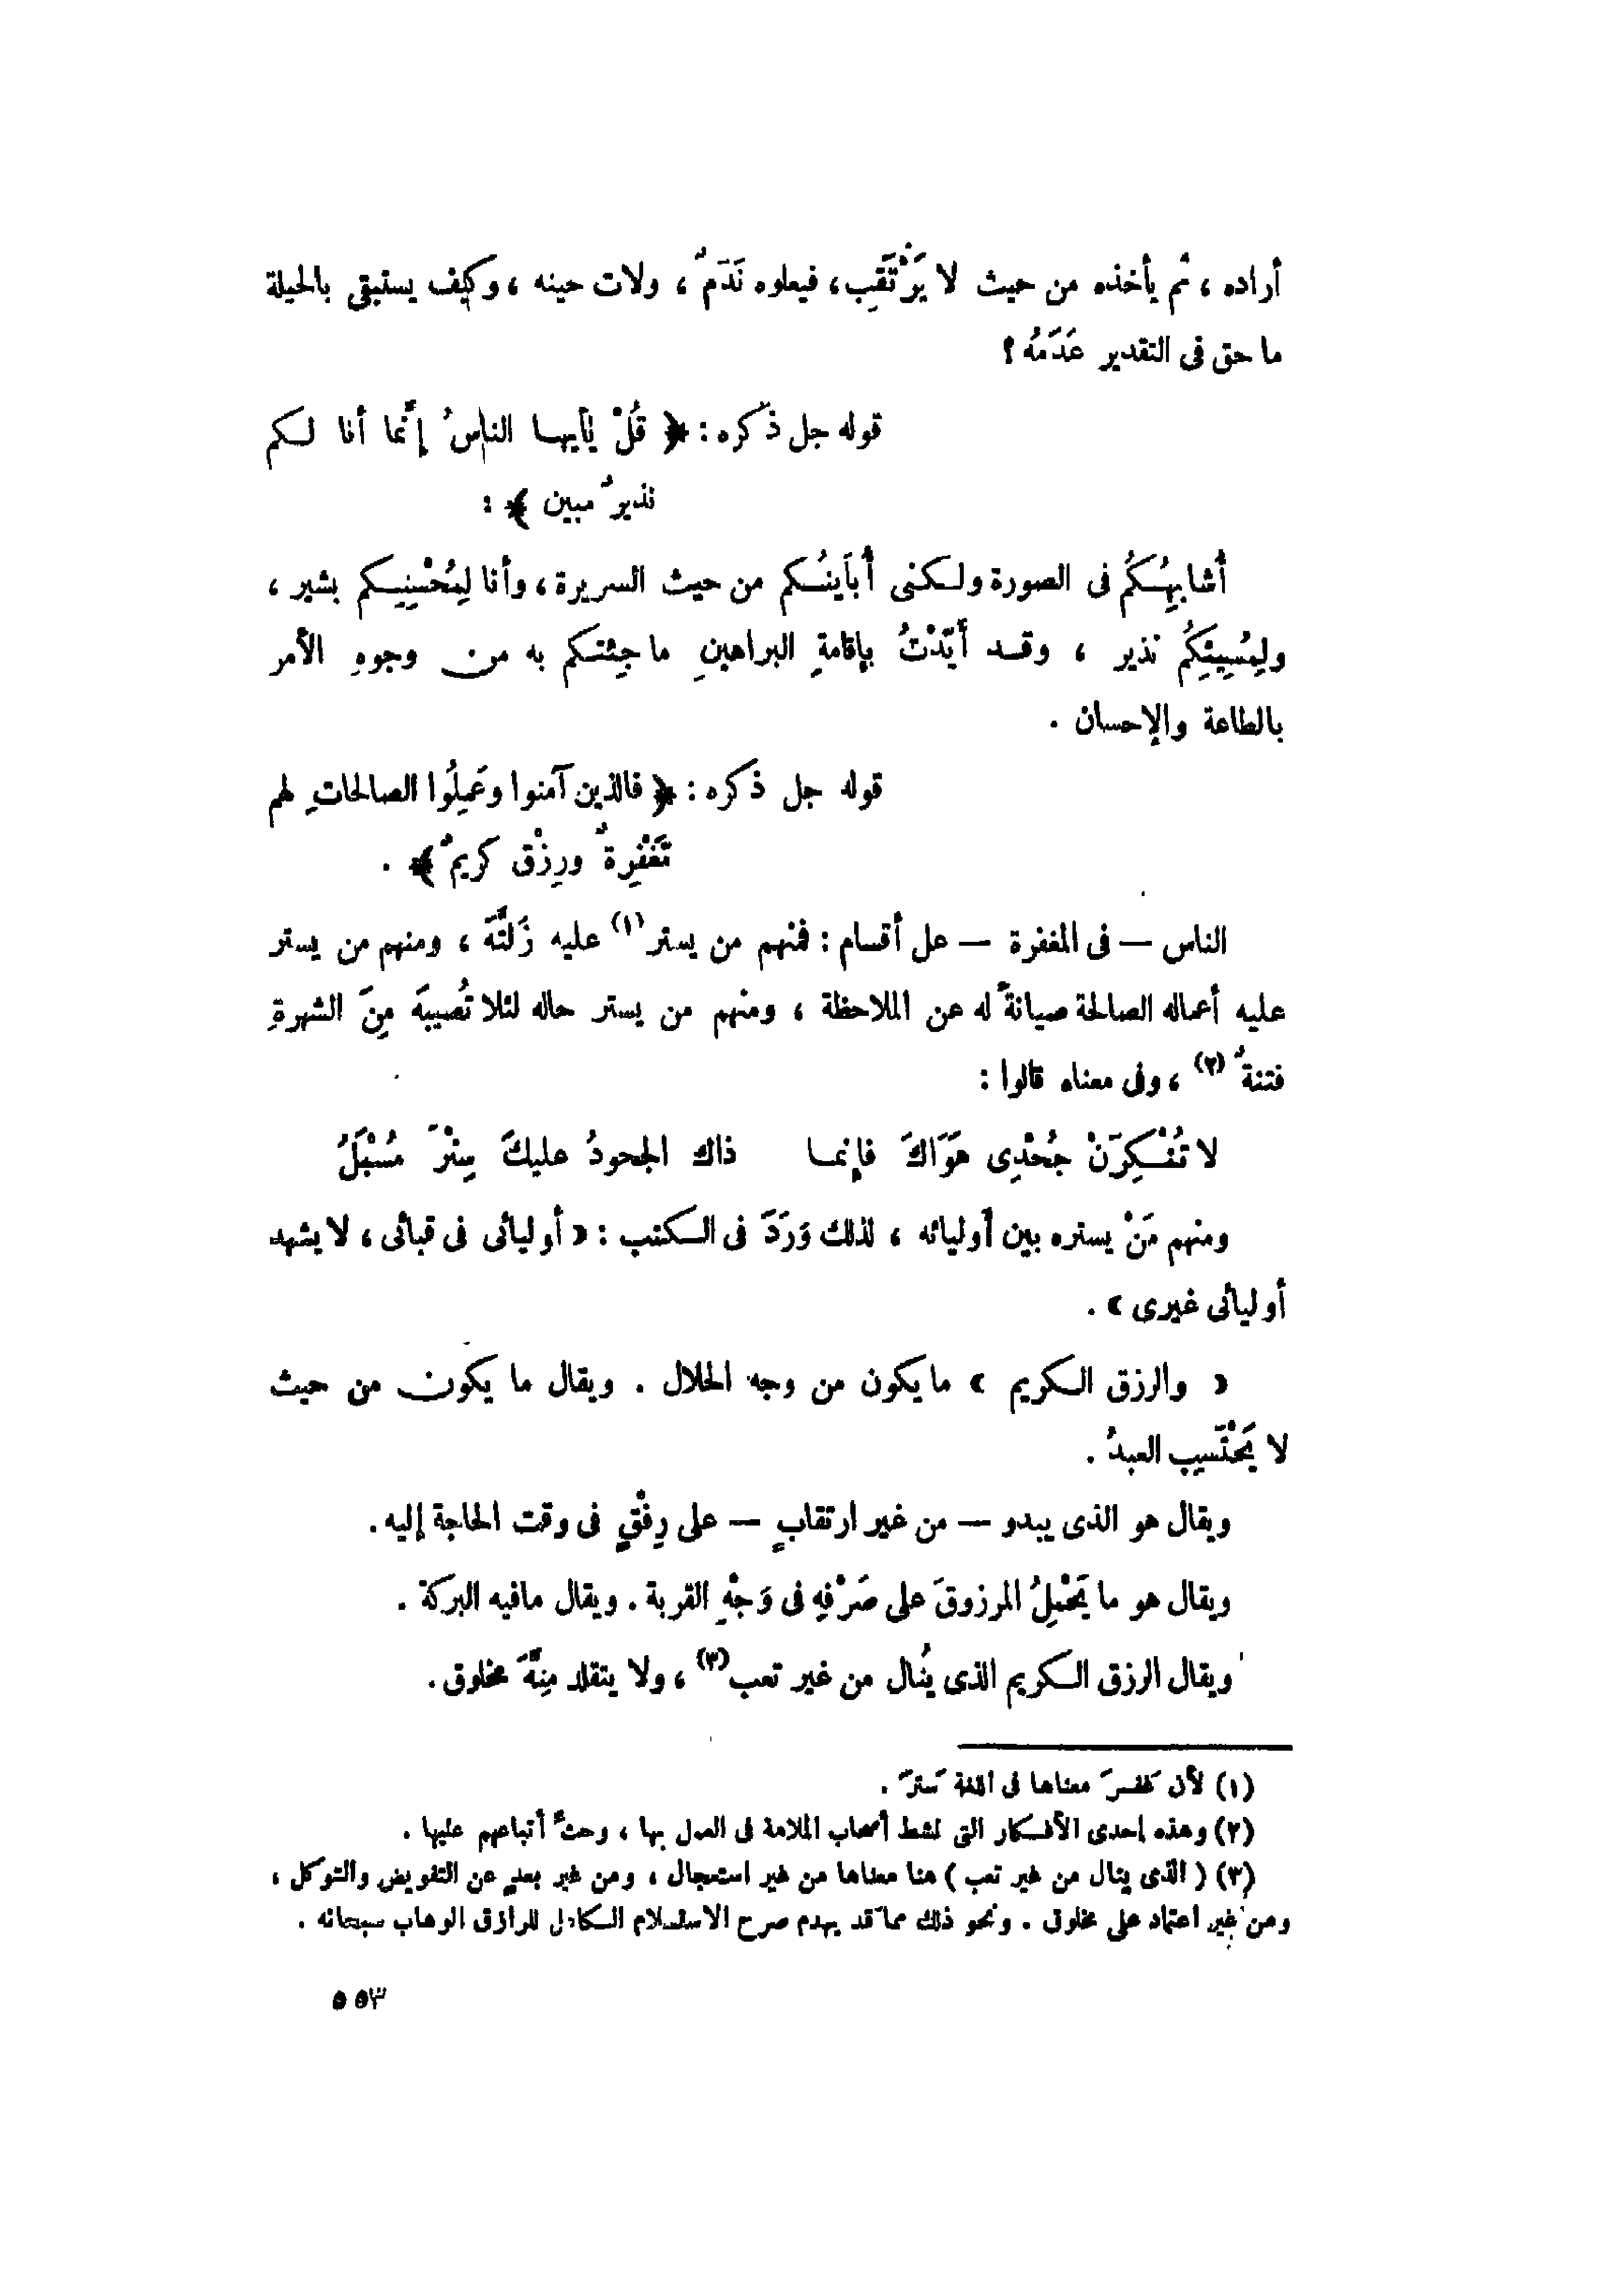 أراده ، ثم يأخذه من حيث لا يَرْتَقِب، فيعلوه نَدَمٌ ، ولات حينه ، وكيف يستبقى بالحيلة
ما حق فى التقدير عَدَمُه ؟
قوله جل ذكره : ﴿ قُلْ يٰأيهـا الناسُ إنَّما أنا لـكم
نذيرٌ مبين ﴾ :
أُشابِهُـكُم فى الصورة ولـكنى أُبَايِنُـكم من حيث السريرة ، وأنا لِمُحْسِنِيـكم بشير ،
ولِمُسِيئِكُم نذير ، وقـد أُيِّدْتُ بإقامةِ البراهينِ ما جِئتـكم به من وجوهِ الأمر
بالطاعة والإحسان .
قوله جل ذكره : ﴿ فالذين آمنوا وعَمِلُوا الصالحاتِ لهم
مَّغْفِرةٌ ورِزْق كريمٌ ﴾ .
الناس — فى المغفرة — على أقسام : فمنهم من يستر (١) عليه زَلَّتَه ، ومنهم من يستر
عليه أعماله الصالحة صيانةً له عن الملاحظة ، ومنهم من يستر حاله لئلا تُصيبَه مِنَ الشهرةِ
فتنةٌ (٢) ، وفى معناه قالوا :
لا تُنْـكِرَنْ جُحْدِى هَوَاكَ فإنمـا ذاك الجحودُ عليكَ سِتْرٌ مُسْبَلُ
ومنهم مَنْ يستره بين أوليائه ، لذلك وَرَدَ فى الـكتب : « أوليائى فى قبائى ، لا يشهد
أوليائى غيرى » .
« والرزق الـكريم » ما يكون من وجه الحلال . ويقال ما يكون من حيث
لا يَحْتَسِب العبدُ .
ويقال هو الذى يبدو — من غير ارتقابٍ — على رِفْقٍ فى وقت الحاجة إليه .
ويقال هو ما يَحْمِلُ المرزوقَ على صَرْفِه فى وَجْهِ القربة . ويقال مافيه البركة .
ويقال الرزق الـكريم الذى يُنال من غير تعب (٣) ، ولا يتقلد مِنَّةَ مخلوق .
(١) لأن غفـرَ معناها فى اللغة سترَ .
(٢) وهذه إحدى الأفـكار التى نشط أصحاب الملامة فى العمل بها ، وحثِّ أتباعهم عليها .
(٣) ( الذى ينال من غير تعب ) هنا معناها من غير استعجال ، ومن غير بعدٍ عن التفويض والتوكل ،
ومن غير اعتماد على مخلوق . ونحو ذلك مما قد يهدم صرح الاستسلام الـكامل للرازق الوهاب سبحانه .
٥٥٣